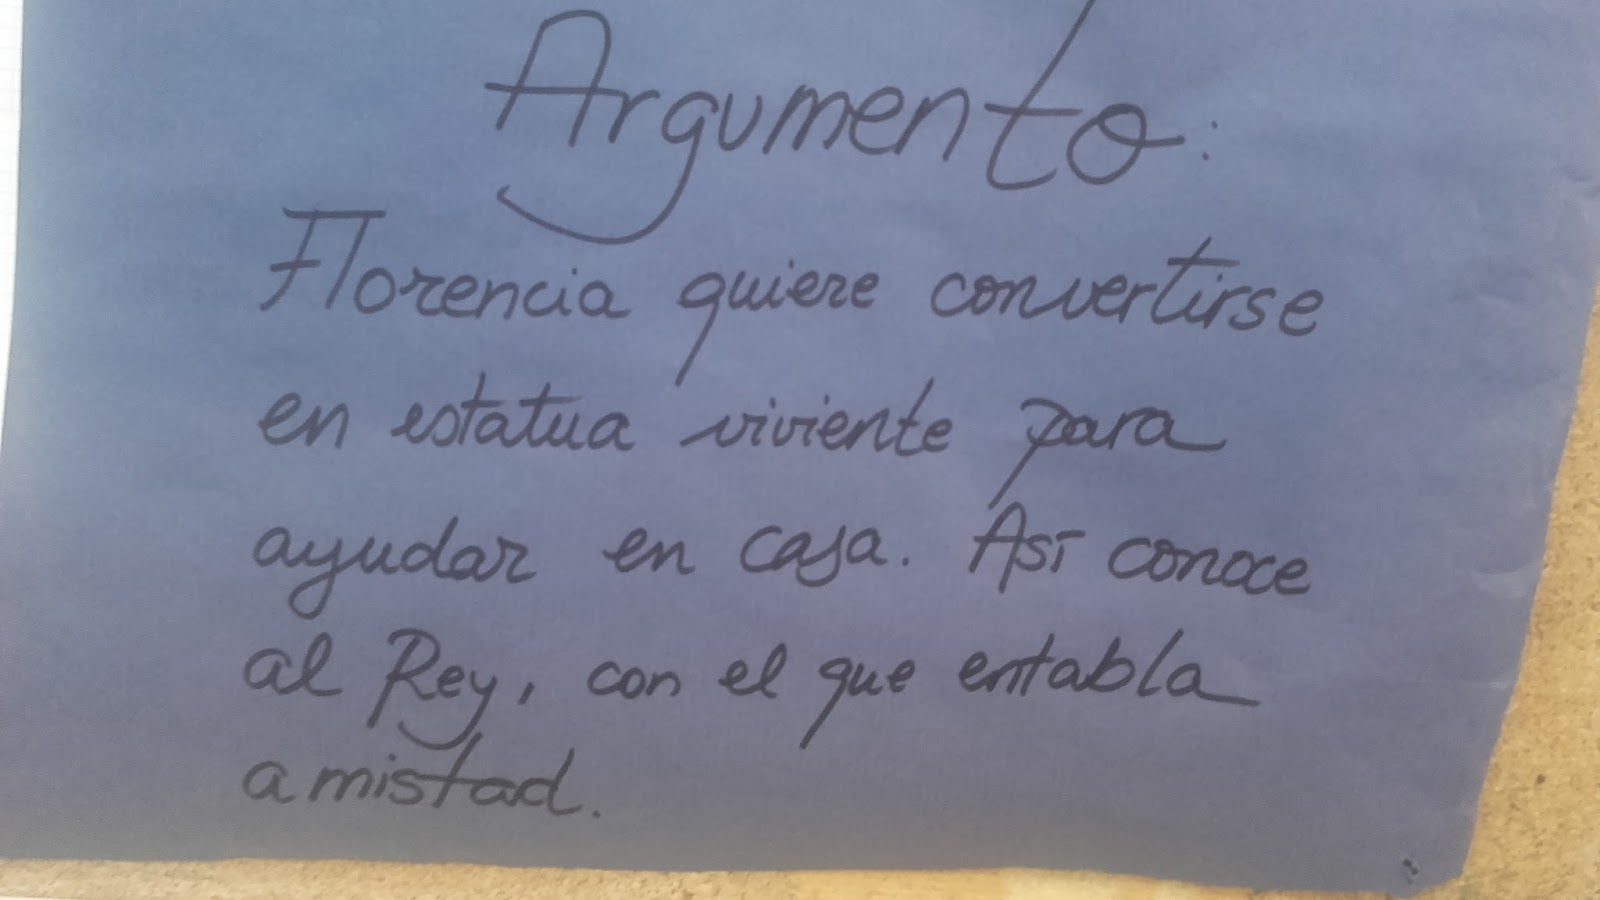 Argumento:
Florencia quiere convertirse
en estatua viviente para
ayudar en casa. Así conoce
al Rey, con el que entabla
amistad.